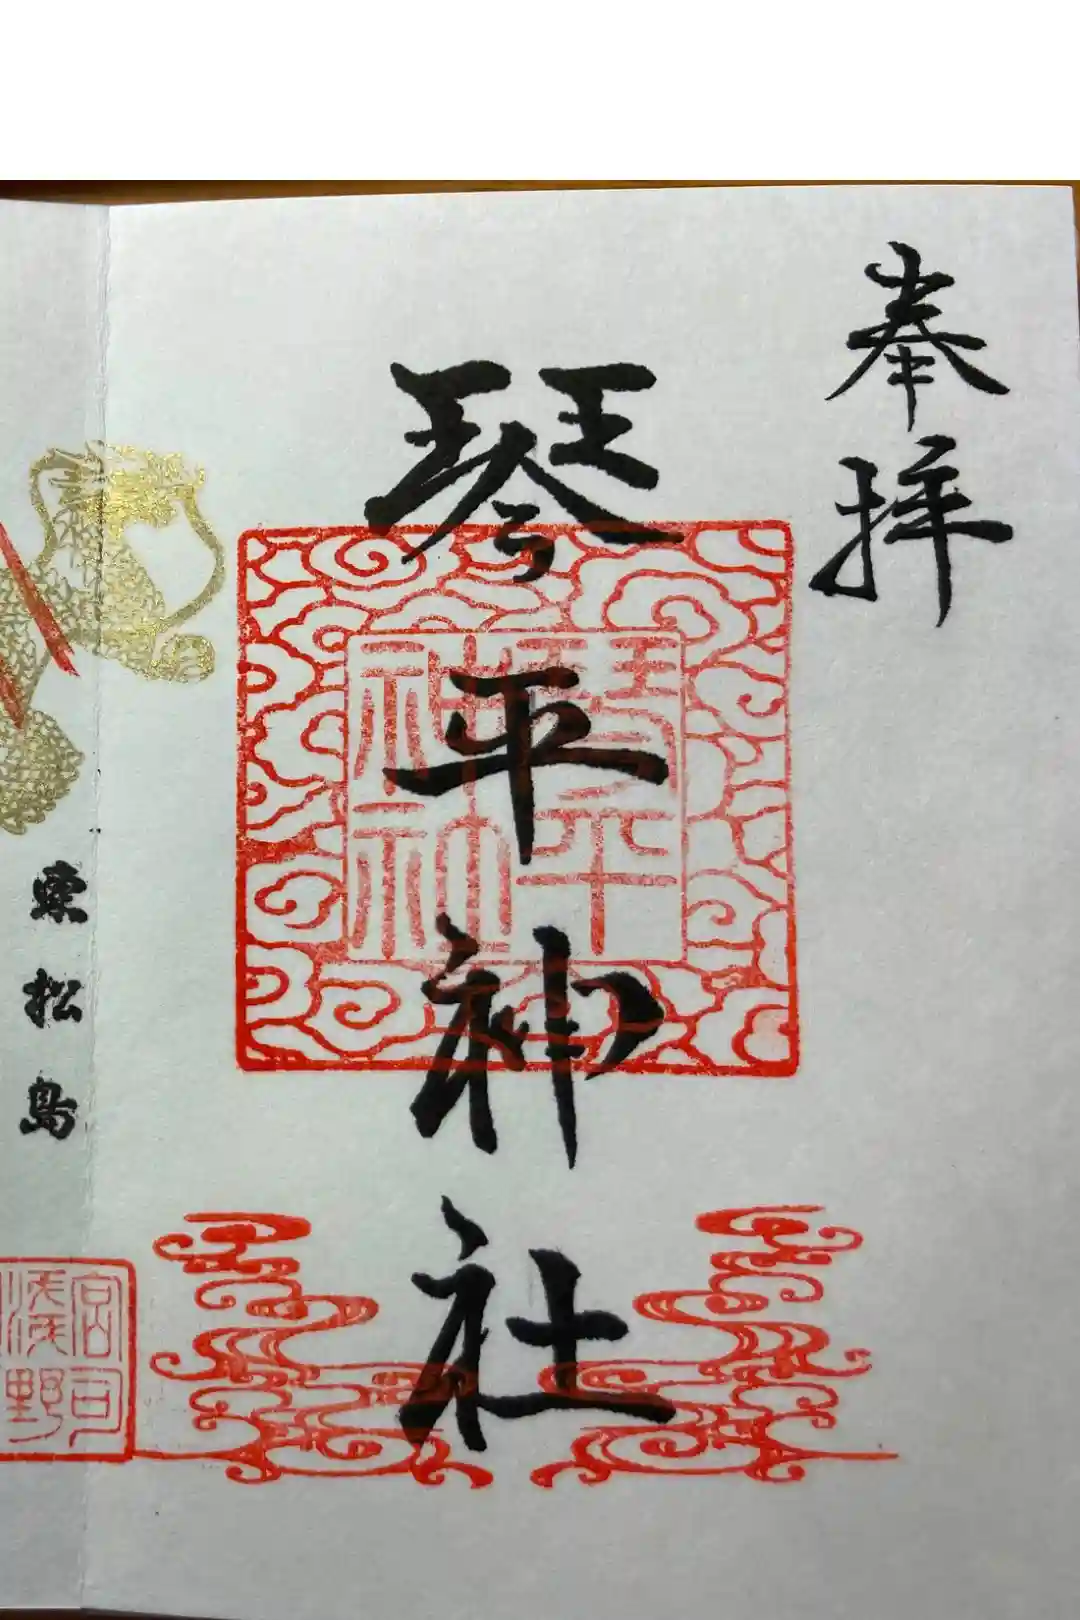 奉拝
琴平神社
琴平
神社
東松島
宮司
浅野